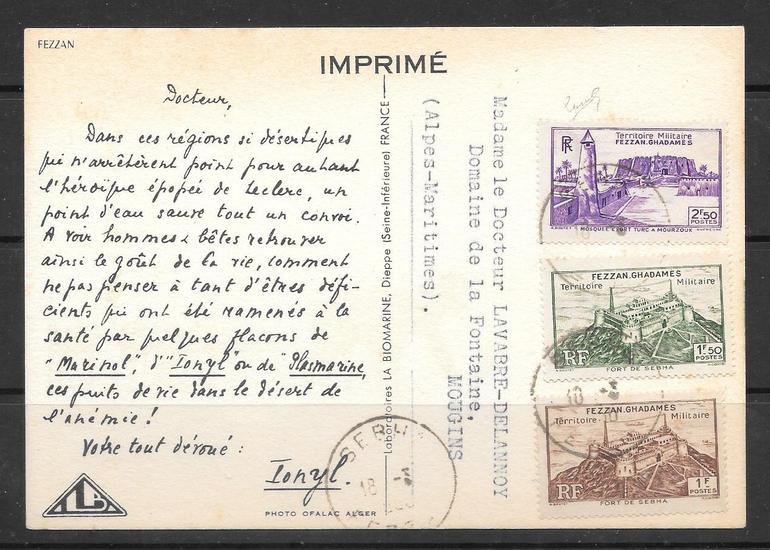 FEZZAN
IMPRIMÉ
Docteur,
Dans ces régions si désertiques
qui n'arrêtèrent point pour autant
l'héroïque épopée de Leclerc, un
point d'eau sauve tout un convoi.
A voir hommes & bêtes retrouver
ainsi le goût de la vie, comment
ne pas penser à tant d'êtres défi-
cients qui ont été ramenés à la
santé par quelques flacons de
"Marinol", d'"Ionyl" ou de "Plasmarine,
ces puits de vie dans le désert de
l'anémie!
Votre tout dévoué :
Ionyl.
PHOTO OFALAC ALGER
LLB
Laboratoires LA BIOMARINE, Dieppe (Seine-Inférieure) FRANCE
Madame le Docteur LAVABRE-DELANNOY
Domaine de la Fontaine,
MOUGINS
(Alpes-Maritimes).
RF
Territoire Militaire
FEZZAN.GHADAMES
2F50
POSTES
MOSQUEE & FORT TURC A MOURZOUK
FEZZAN.GHADAMES
Territoire Militaire
RF
1F50
POSTES
FORT DE SEBHA
FEZZAN.GHADAMES
Territoire Militaire
RF
1F
POSTES
FORT DE SEBHA
SEBHA
18